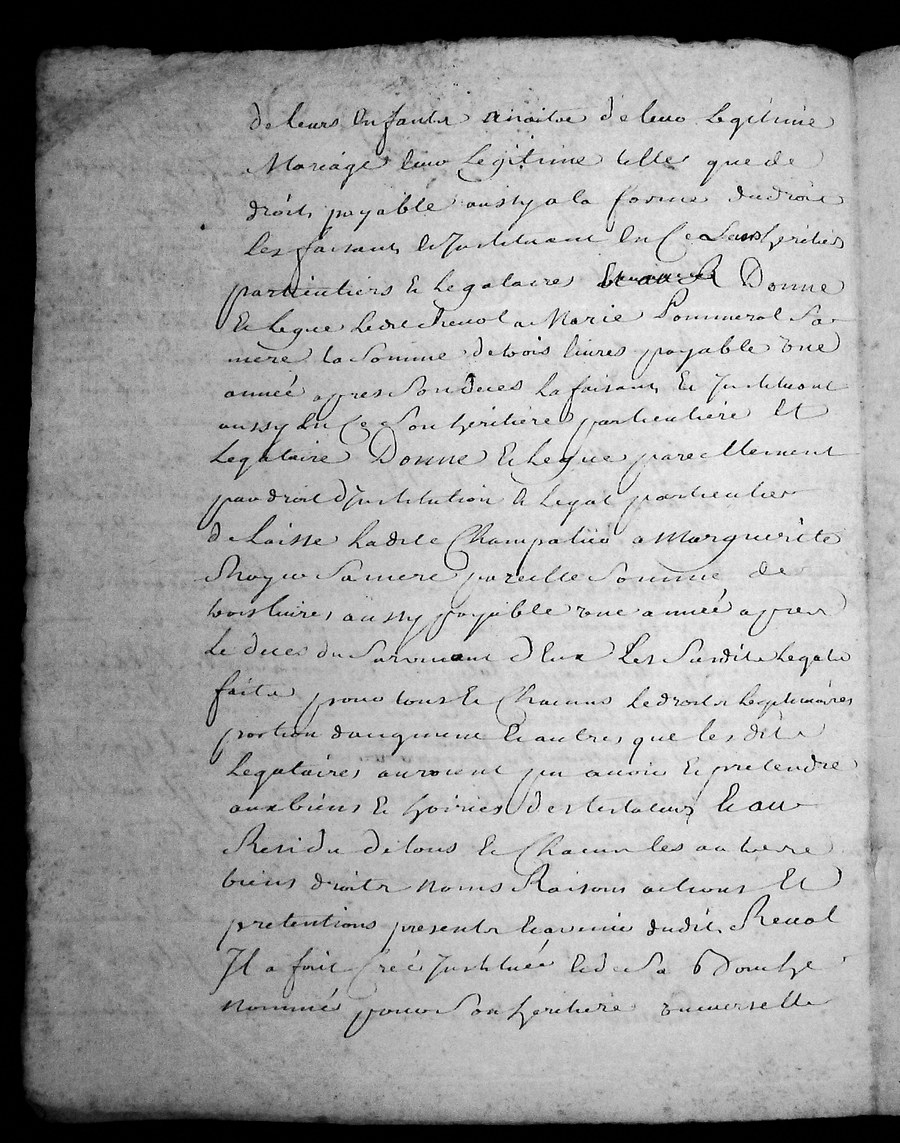 de leurs Enfants a naitre de leur Legitime
Mariage leur Legitime telle que de
droit, payable aussy a la forme du droit
Les faisant, et Justituant En Ce Leurs heritiers
particuliers & Legataires Donne
& Legue Ledit Revol a Marie Pommerol Sa
mere la Somme de trois livres payable une
année apres Son deces La faisant, & Jnstituant
aussy En Ce Son heritiere particuliere Et
Legataire Donne & Legue pareillement
par droit d'Jnstitution & Legat particulier
delaisse Ladite a Marguerite
Sa mere pareille Somme de
trois livres, aussy payable une année apres
Le deces du Survivant d'Eux Les Susdits Legats
faits pour tous & Chacuns Le droits Legitimaires
portion d'augment & autres que les dits
Legataires auroient pu avoir & pretendre
aux biens & hoiries des testateurs Et au
Residu de tous & Chacun les autres
biens droits noms Raisons actions Et
pretentions presents & avenir dudit, Revol
Jl a fait Créé Jnstituée & de Sa bouche
nommée pour Son heritiere universelle